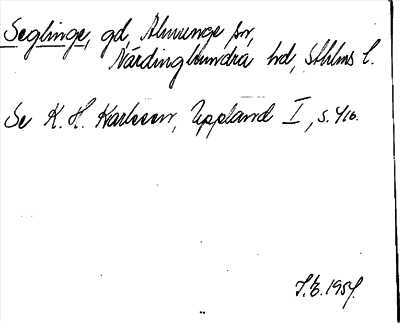 Seglinge, gd, Almunge sn,
Närdinghundra hd, Sthlms l.
Se K. H. Karlsson, Uppland I, s. 416.
J.E. 1954.